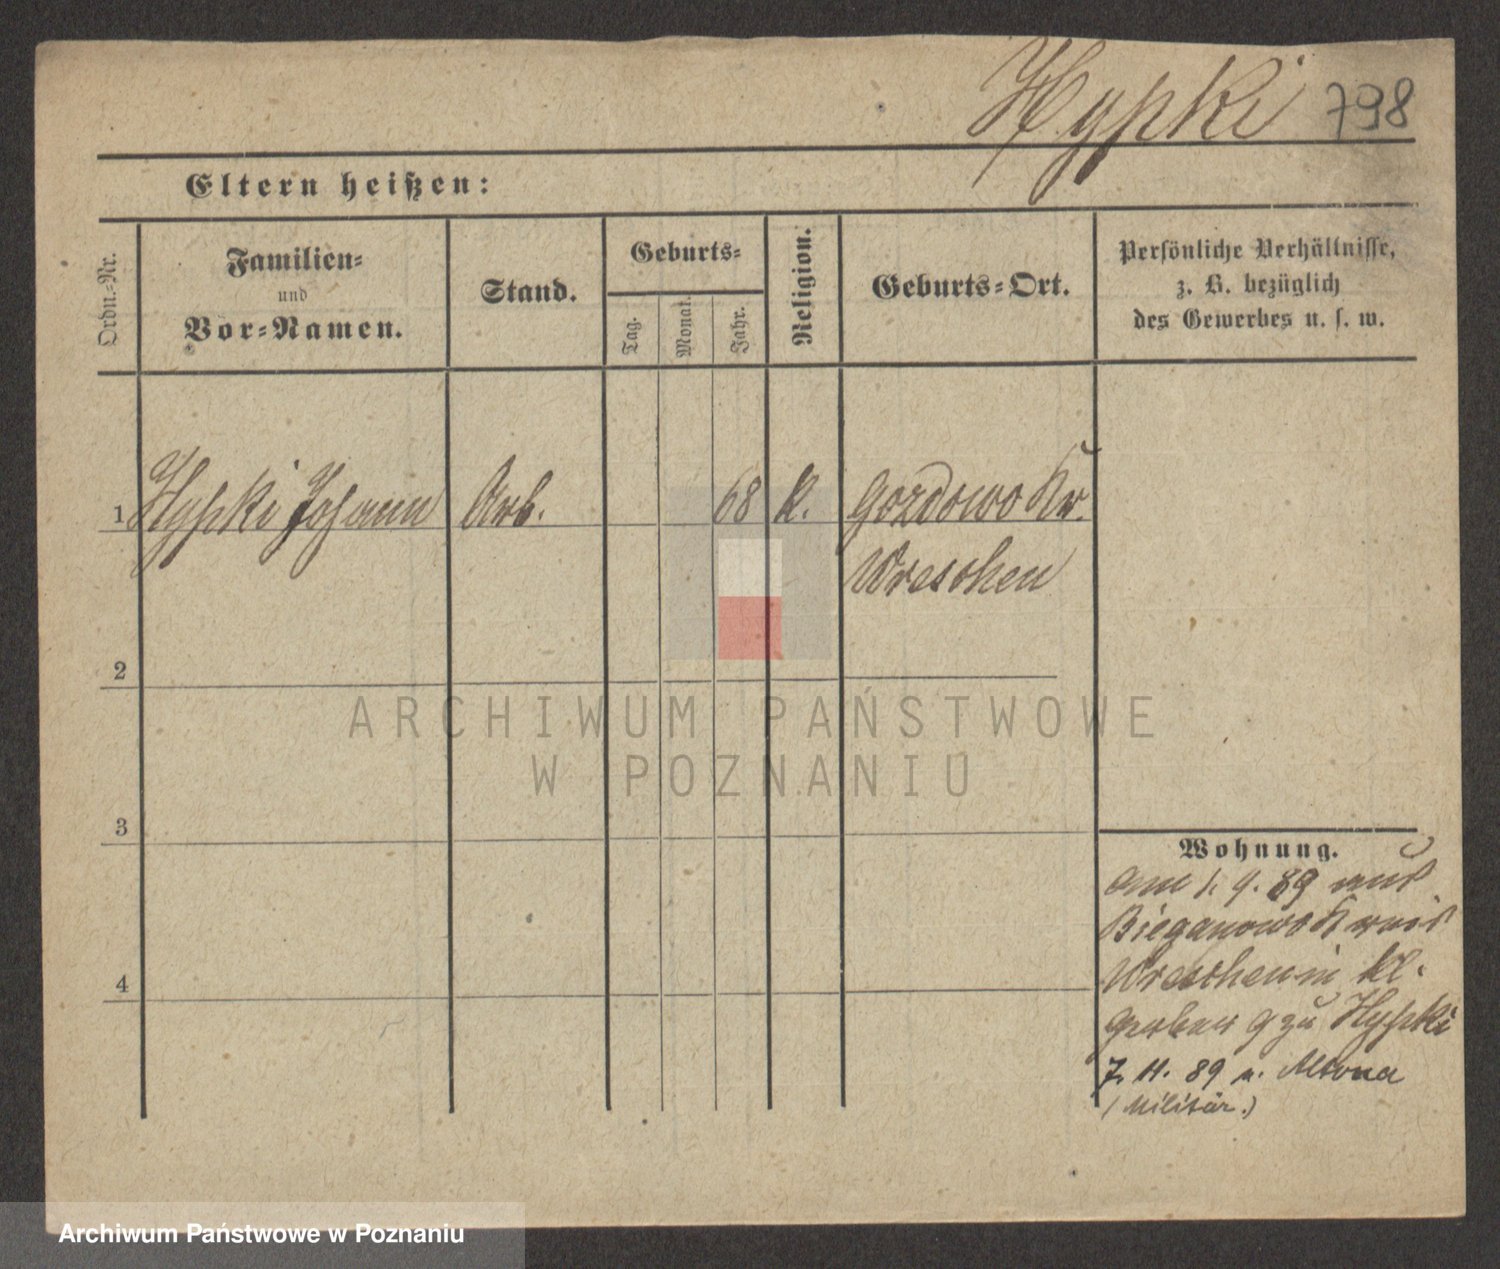 Hypki 798
Eltern heißen:
Ordn.-Nr.
Familien-
und
Vor-Namen.
Stand.
Geburts-
Tag.
Monat.
Jahr.
Religion.
Geburts-Ort.
Persönliche Verhältnisse,
z. B. bezüglich
des Gewerbes u. s. w.
1 Hypki Johann Arb. 68 K. Gozdowo Kr.
Wreschen
2
3
4
Wohnung.
Am 1. 9. 89 aus
Bieganowo Kreis
Wreschen in Kl.
zu Hypki
7. 11. 89 n. Altona
(Militär.)
ARCHIWUM PAŃSTWOWE
W POZNANIU
Archiwum Państwowe w Poznaniu